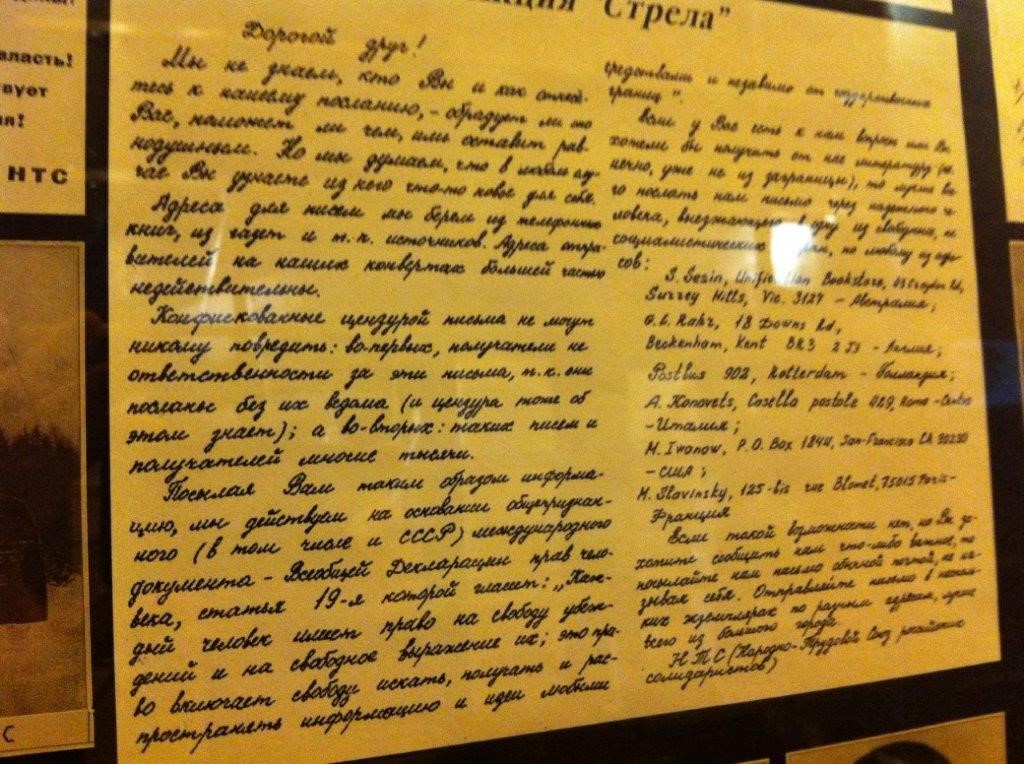 "Стрела"
ласть!
вует
НТС
Дорогой друг!
Мы не знаем, кто Вы и как отнесё-
тесь к нашему посланию, – обрадует ли оно
Вас, поможет ли чем, иль оставит рав-
нодушным. Но мы думаем, что в любом слу-
чае Вы узнаете из него что-то новое для себя.
Адреса для писем мы берем из телефонных
книг, из газет и т.п. источников. Адреса отпра-
вителей на наших конвертах большей частью
недействительны.
Конфискованные цензурой письма не могут
никому повредить: во-первых, получатели не
ответственности за эти письма, т.к. они
посланы без их ведома (и цензура тоже об
этом знает); а во-вторых: таких писем и
получателей многие тысячи.
Посылая Вам таким образом информа-
цию, мы действуем на основании общепризнан-
ного (в том числе и СССР) международного
документа – Всеобщей Декларации прав чело-
века, статья 19-я которой гласит: „Каж-
дый человек имеет право на свободу убеж-
дений и на свободное выражение их; это пра-
во включает свободу искать, получать и рас-
пространять информацию и идеи любыми
средствами и независимо от государственных
границ".
Если у Вас есть к нам вопрос или Вы
хотели бы получить от нас литературу (ко-
нечно, уже не из заграницы), то нужно все-
го послать нам письмо через надежного че-
ловека, выезжающего в одну из свободных, не
социалистических стран, по любому из адре-
сов:
S. Sesin, Unification Bookstore, Croydon Rd,
Surrey Hills, Vic. 3127 – Австралия;
G.L. Rahr, 18 Downs Rd,
Beckenham, Kent BR3 2JY – Англия;
Postbus 902, Rotterdam – Голландия;
A. Konovets, Casella postale 429, Roma-Centro
– Италия;
M. Iwanow, P.O. Box 1844, San-Francisco CA
– США;
M. Slavinsky, 125-bis rue Blomet, 75015 Paris –
Франция
Если такой возможности нет, но Вы за-
хотите сообщить нам что-либо важное, то
посылайте нам письмо обычной почтой, не на-
зывая себя. Отправляйте письмо в несколь-
ких экземплярах по разным адресам, лучше
всего из большого города
НТС (Народно-Трудовой Союз российских
солидаристов)
С